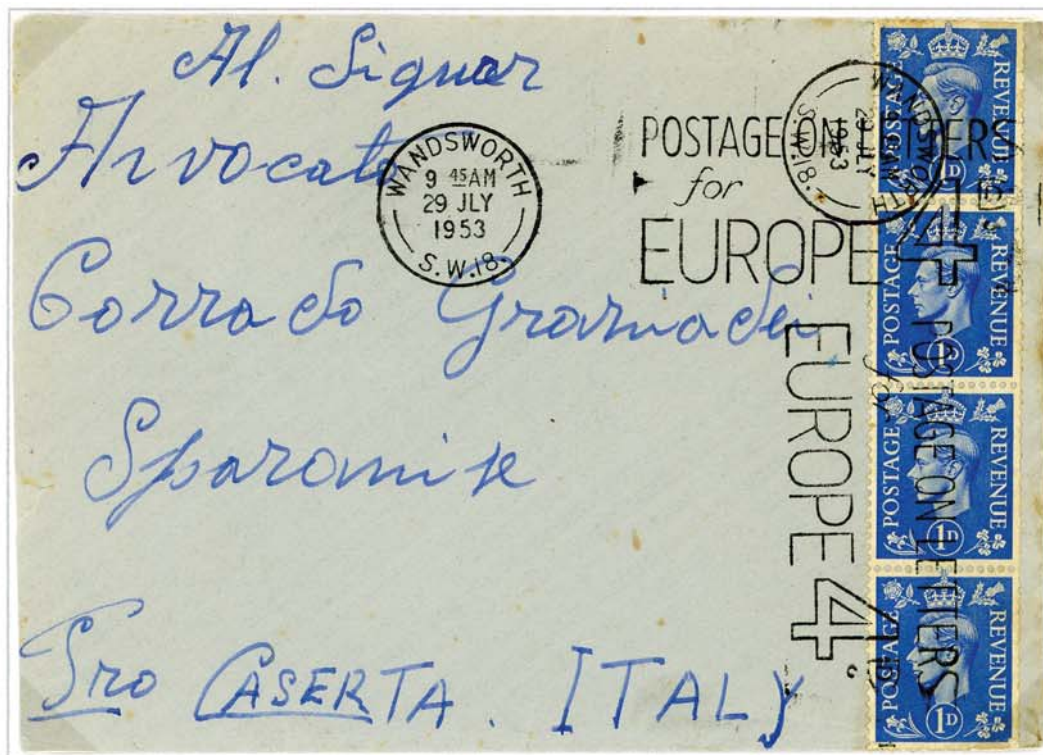 Al. Signor
Avvocato
Corrado Graziadei
Sparanise
Pro CASERTA. ITALY
WANDSWORTH
9 45AM
29 JLY
1953
S.W.18.
POSTAGE ON LETTERS
for
EUROPE 4D.
WANDSWORTH
9 45AM
29 JLY
1953
S.W.18.
POSTAGE ON LETTERS
for
EUROPE 4D.
POSTAGE REVENUE
1D
POSTAGE REVENUE
1D
POSTAGE REVENUE
1D
POSTAGE REVENUE
1D